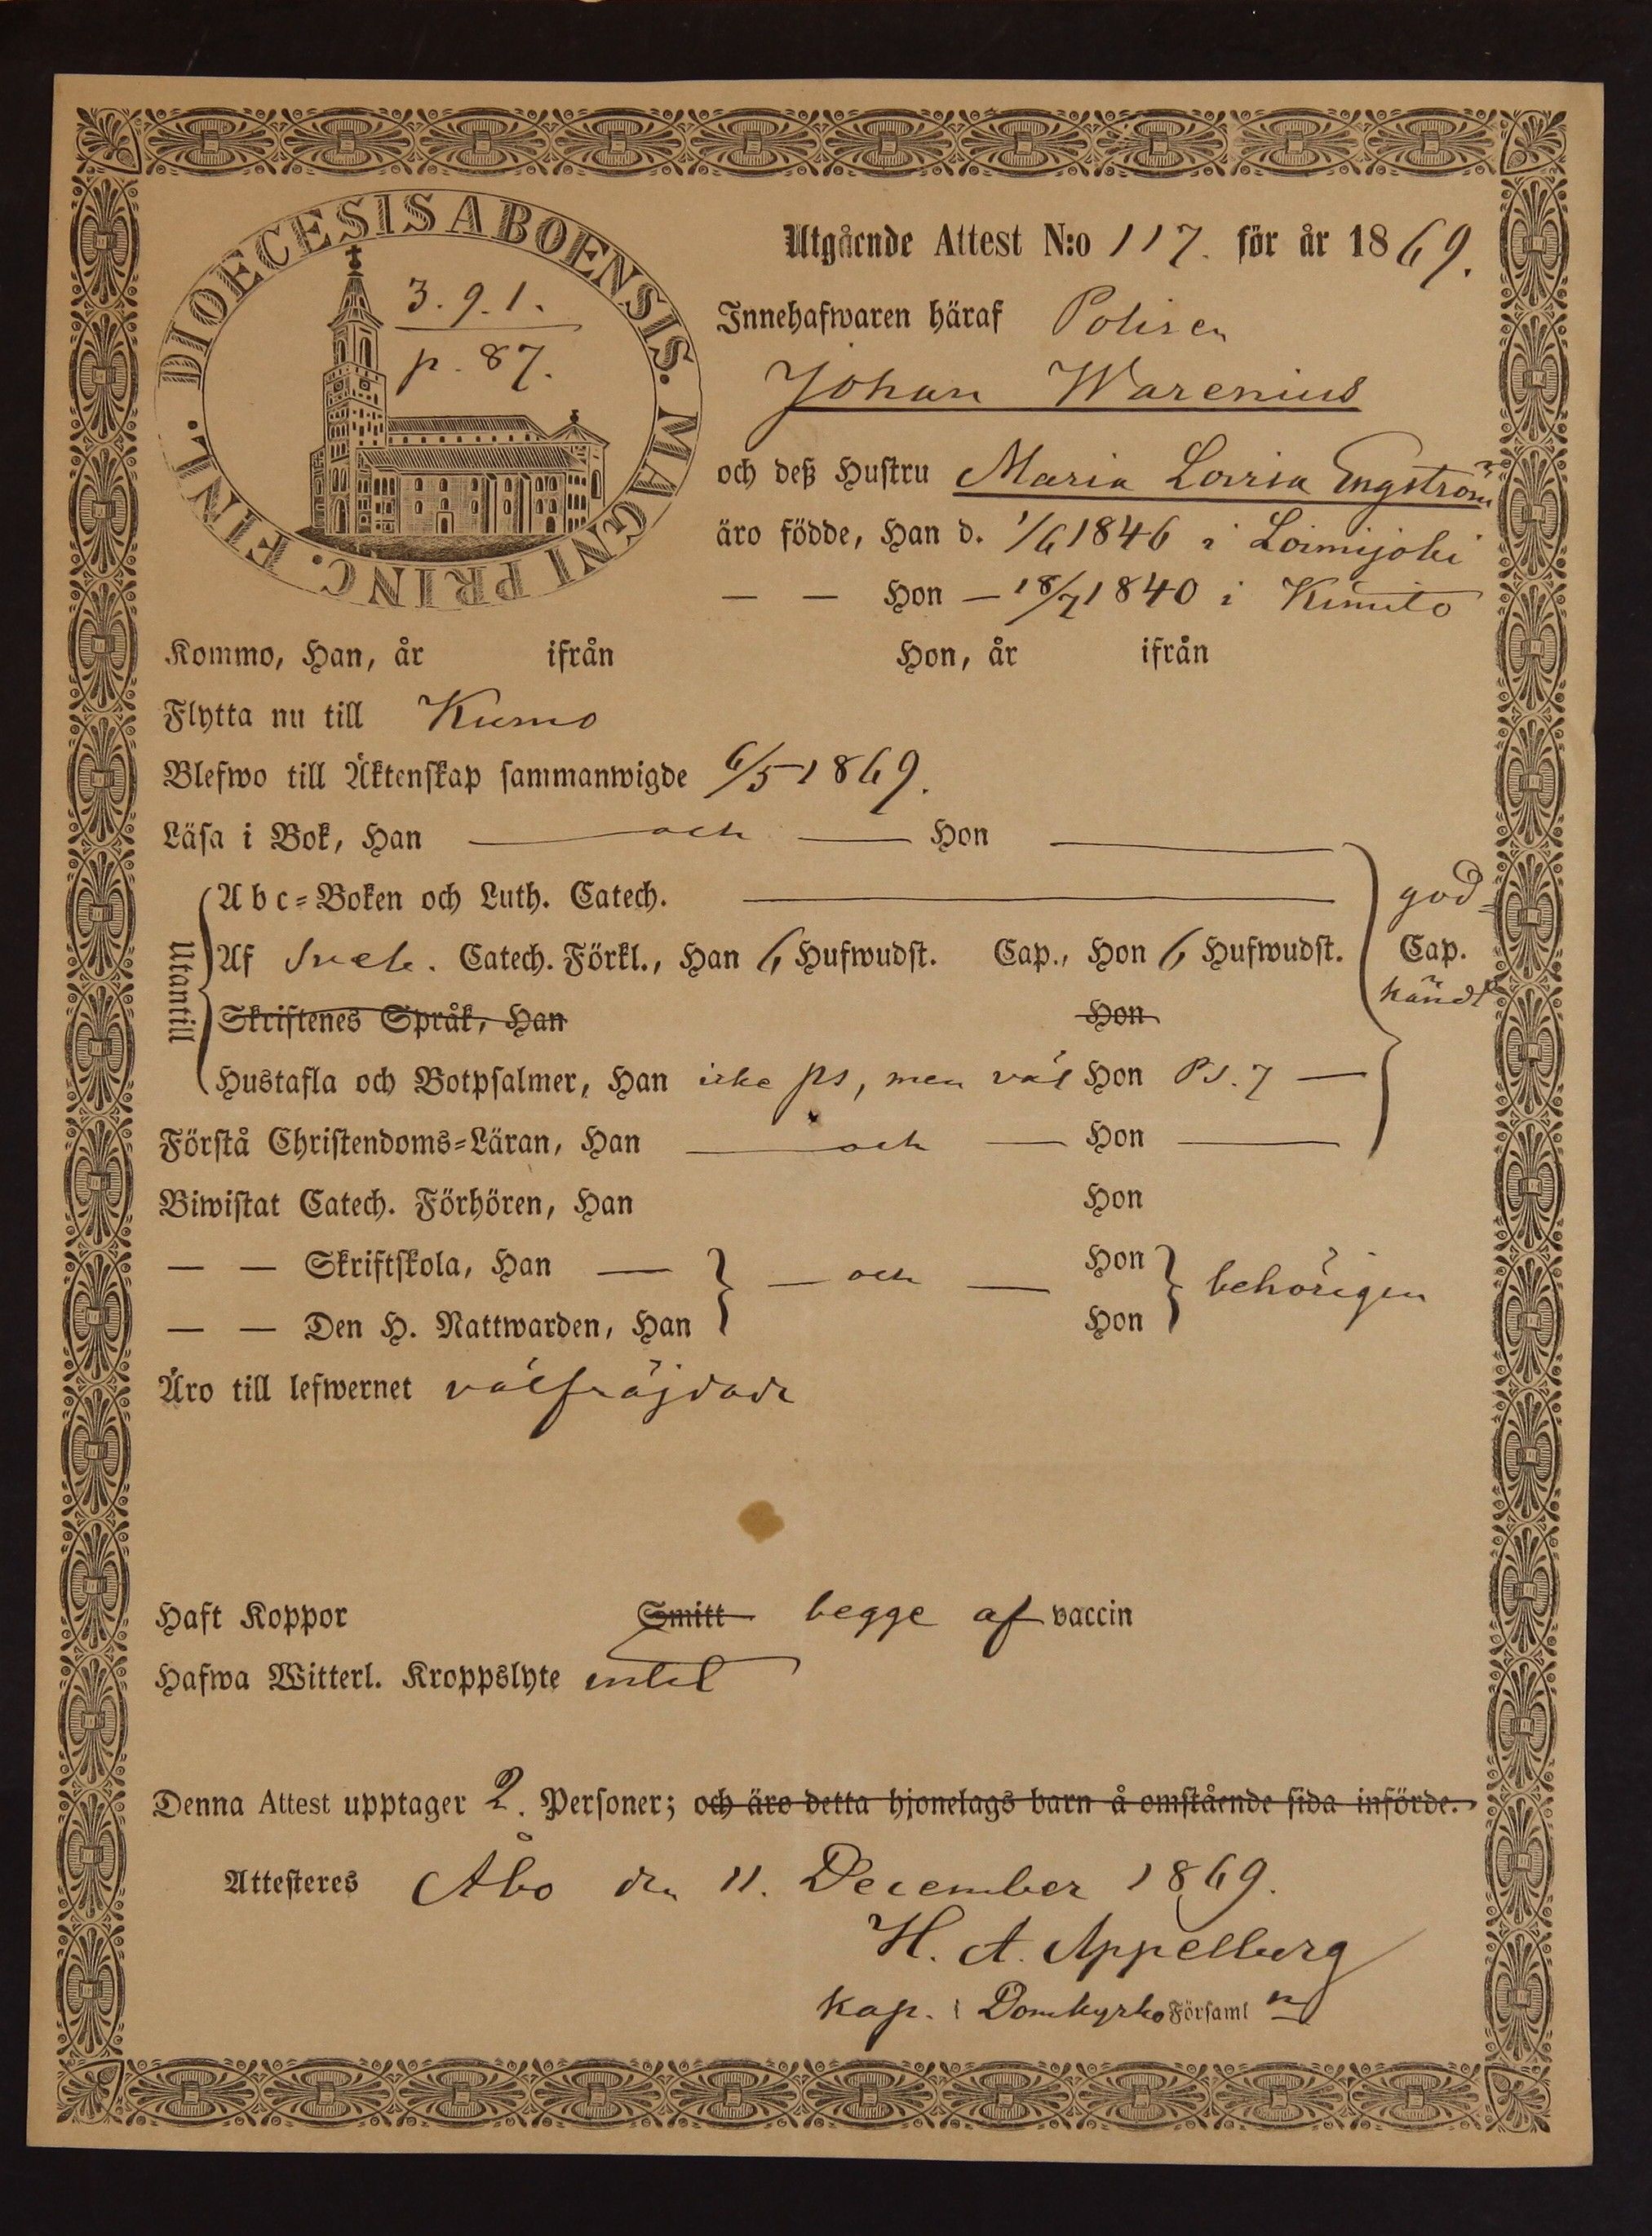 DIOECESIS ABOENSIS. MAGNI PRINC. FINL.
3. 9. 1.
p. 87.
Utgående Attest N:o 117. för år 1869.
Innehafwaren häraf Polisen
Johan Warenius
och deß Hustru Maria Lovisa Engström
äro födde, Han d. 1/6 1846 i Loimijoki
— — Hon — 18/7 1840 i Kimito
Kommo, Han, år ifrån Hon, år ifrån
Flytta nu till Kumo
Blefwo till Äktenskap sammanwigde 6/5 1869.
Läsa i Bok, Han — och — Hon —
Utantill
Abc-Boken och Luth. Catech. — god
Af Sveb. Catech. Förkl., Han 6 Hufwudst. Cap., Hon 6 Hufwudst. Cap.
känd
Skriftenes Språk, Han Hon
Hustafla och Botpsalmer, Han icke ps, men väl Hon Ps. 7 —
Förstå Christendoms-Läran, Han — och — Hon —
Biwistat Catech. Förhören, Han Hon
— — Skriftskola, Han — Hon
— och — behörigen
— — Den H. Nattwarden, Han Hon
Äro till lefwernet välfräjdade
Haft Koppor Smitt begge af vaccin
Hafwa Witterl. Kroppslyte intet
Denna Attest upptager 2. Personer; och äro detta hjonelags barn å omstående sida införde.
Attesteres Åbo den 11. December 1869.
H. A. Appelberg
Kap. i Domkyrko Församl n